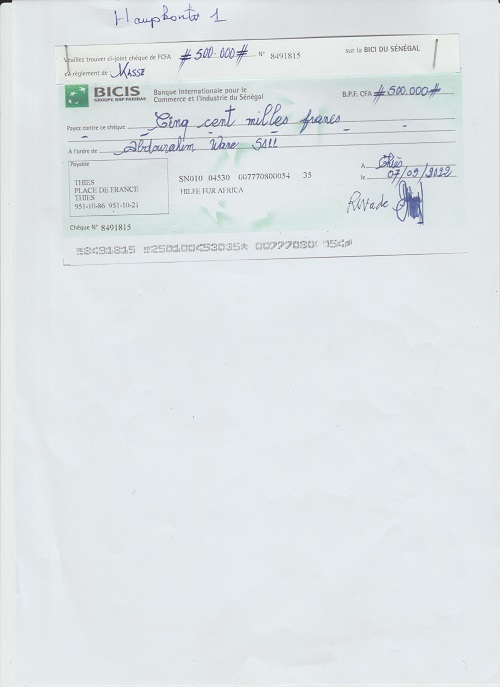 Haupkonto 1
Veuillez trouver ci-joint chèque de FCFA # 500.000 # N° 8491815 sur la BICI DU SÉNÉGAL
en règlement de KASSE
BICIS Banque Internationale pour le
GROUPE BNP PARIBAS Commerce et l'industrie du Sénégal B.P.F. CFA # 500.000 #
Payez contre ce chèque Cinq cent milles francs
A l'ordre de Abdourahim Wane SALL
Payable
THIES
PLACE DE FRANCE
THIES
951-10-86 951-10-21
SN010 04530 007770800054 35
HILFE FUR AFRICA
A Thiès
le 07/09/2022
Chèque N° 8491815
8491815 250100453035 00777080 054